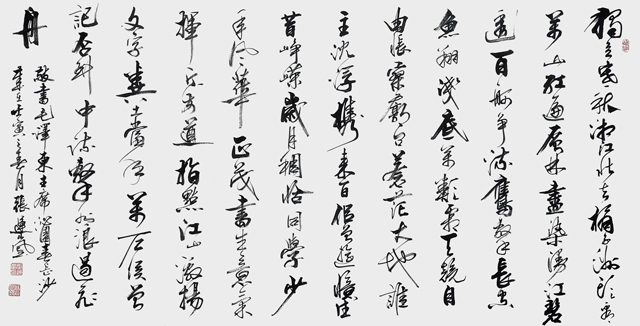 獨立寒秋湘江北去橘子洲頭看
萬山紅遍層林盡染漫江碧
透百舸爭流鷹擊長空
魚翔淺底萬類霜天競自
由悵寥廓問蒼茫大地誰
主沉浮攜來百侶曾遊憶往
昔崢嶸歲月稠恰同學少
年風華正茂書生意氣
揮斥方遒指點江山激揚
文字糞土當年萬户侯曾
記否到中流擊水浪遏飛
舟
敬書毛澤東主席沁園春長沙
歲在壬寅之春月張